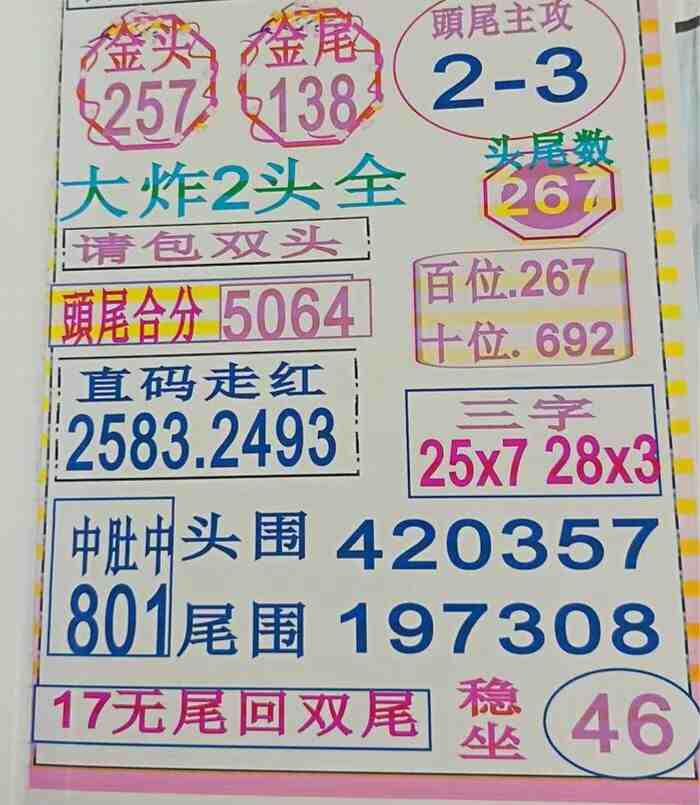 金头
257
金尾
138
頭尾主攻
2-3
大炸2头全
头尾数
267
请包双头
頭尾合分 5064
百位.267
十位.692
直码走红
2583.2493
三字
25x7 28x3
中肚中
801
头围 420357
尾围 197308
17无尾回双尾
稳坐
46